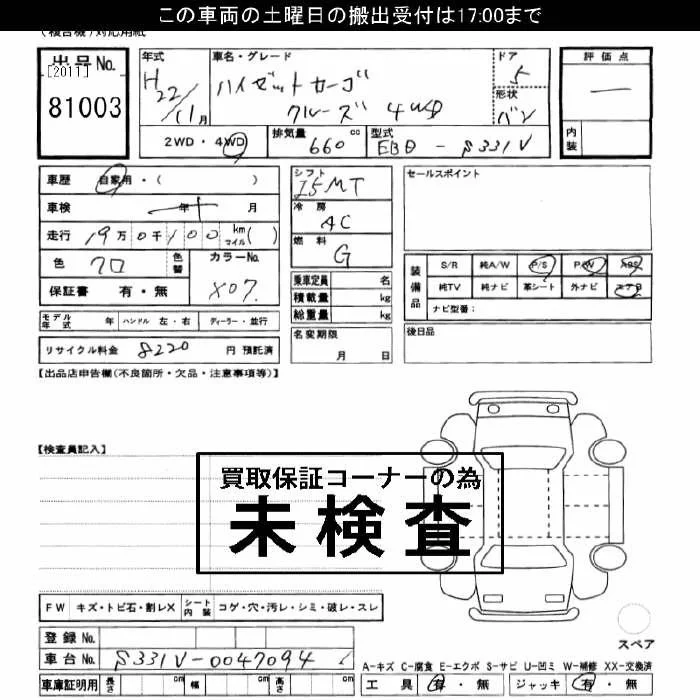 この車両の土曜日の搬出受付は17:00まで
(複合機)対応用紙
出品No.
[2011]
81003
年式
H22/11月
車名・グレード
ハイゼットカーゴ
クルーズ 4WD
ドア
5
形状
バン
評価点
ー
内装
2WD・4WD
排気量
660 cc
型式
EBD - S331V
車歴 自家用・( )
車検 年 月
走行 19万0千100 km マイル( )
色 クロ 色替
カラーNo. X07.
保証書 有・無
シフト
I5MT
冷房
AC
燃料
G
乗車定員 名
積載量 kg
総重量 kg
セールスポイント
装備品
S/R 純A/W P/S P/W ABS
純TV 純ナビ 革シート 外ナビ エアB
ナビ型番:
モデル年式 年 ハンドル 左・右 ディーラー・並行
リサイクル料金 8220 円 預託済
名変期限
月 日
後日品
【出品店申告欄(不良箇所・欠品・注意事項等)】
【検査員記入】
買取保証コーナーの為
未検査
FW キズ・トビ石・割レX シート内装 コゲ・穴・汚レ・シミ・破レ・スレ
登録No.
車台No. S331V-0047094
スペア
A-キズ C-腐食 E-エクボ S-サビ U-凹ミ W-補修 XX-交換済
車庫証明用 長さ cm 幅 cm 高さ cm
工具 有・無 ジャッキ 有・無